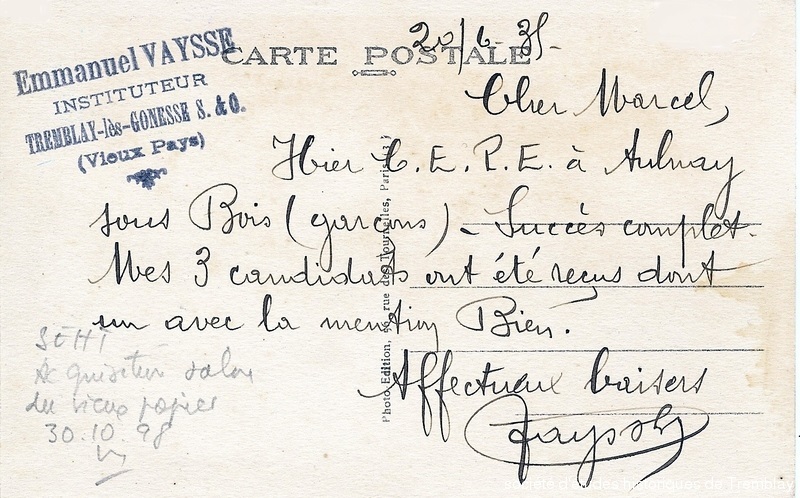 Emmanuel VAYSSE
INSTITUTEUR
TREMBLAY-lès-GONESSE S. & O.
(Vieux Pays)
CARTE POSTALE
20/6-35-
Cher Marcel,
Hier C.E.P.E. à Aulnay
sous Bois (garçons) - Succès complet.
Mes 3 candidats ont été reçus dont
un avec la mention Bien.
Affectueux baisers
Vaysse
SEHT
Acquisition salon
du vieux papier
30.10.98
Photo Edition, rue des Tournelles, Paris
société d'études historiques de Tremblay